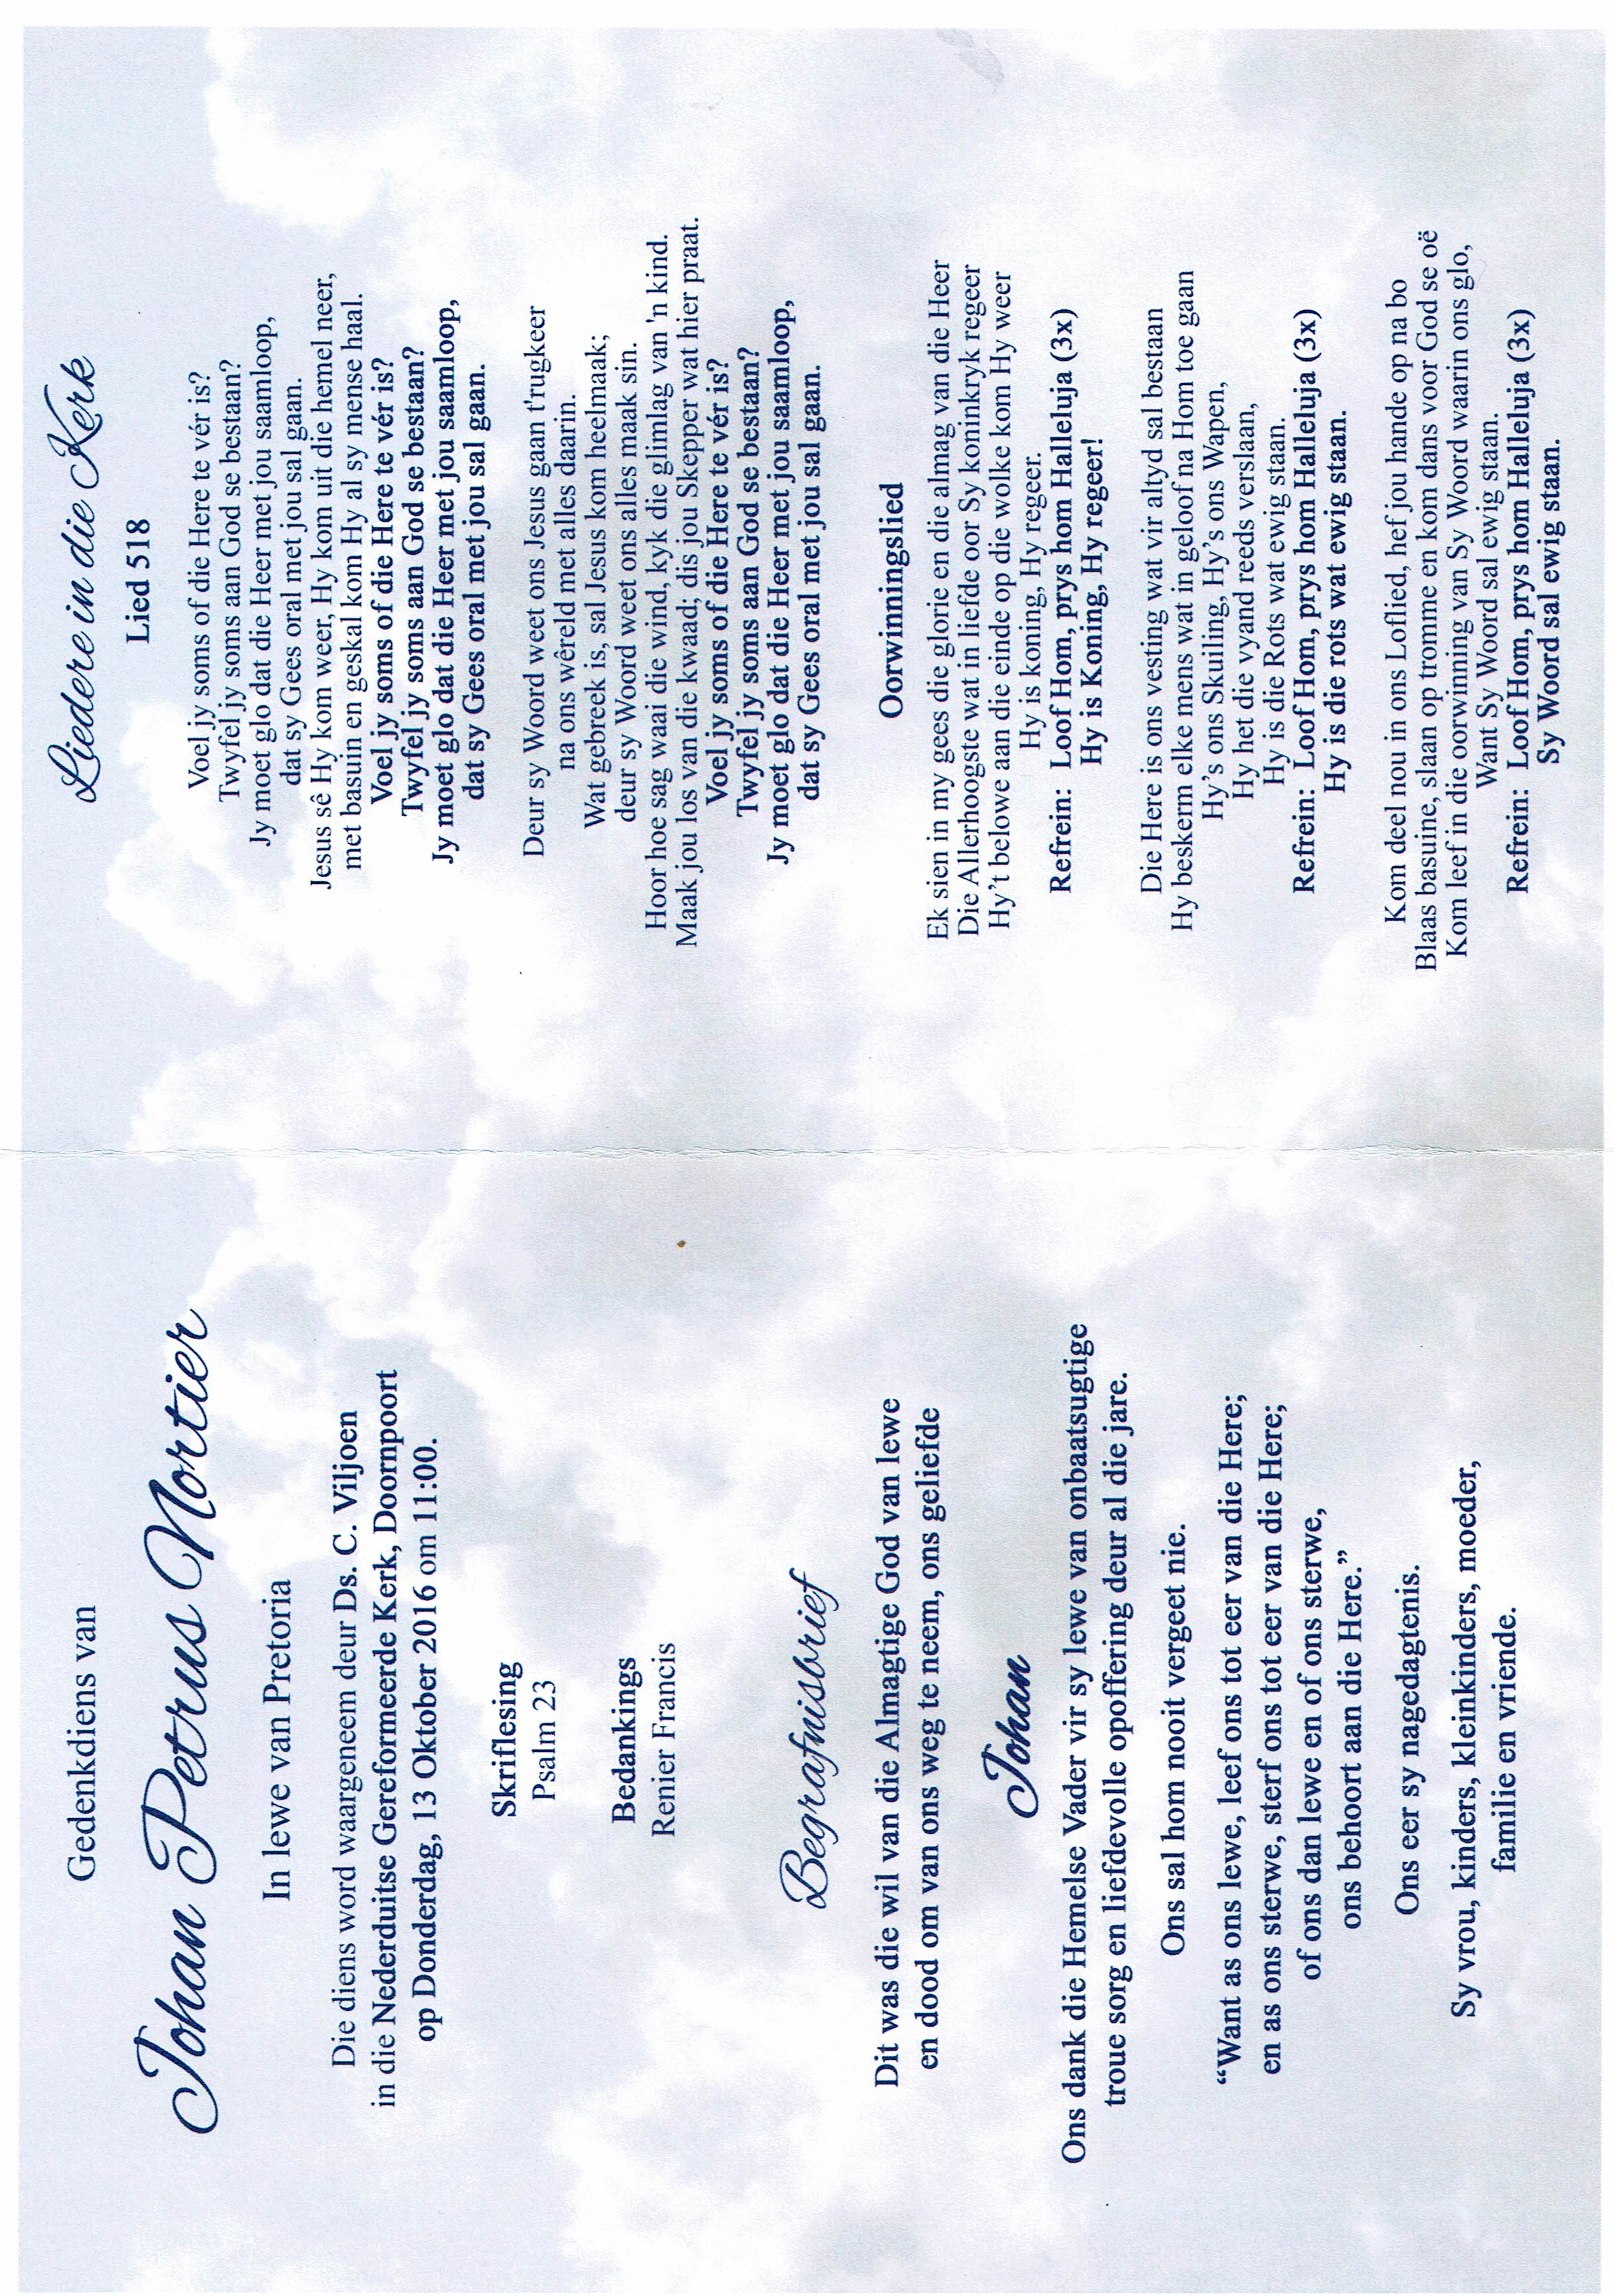 Gedenkdiens van
Johan Petrus Nortier
In lewe van Pretoria
Die diens word waargeneem deur Ds. C. Viljoen
in die Nederduitse Gereformeerde Kerk, Doornpoort
op Donderdag, 13 Oktober 2016 om 11:00.
Skriflesing
Psalm 23
Bedankings
Renier Francis
Begrafnisbrief
Dit was die wil van die Almagtige God van lewe
en dood om van ons weg te neem, ons geliefde
Johan
Ons dank die Hemelse Vader vir sy lewe van onbaatsugtige
troue sorg en liefdevolle opoffering deur al die jare.
Ons sal hom nooit vergeet nie.
“Want as ons lewe, leef ons tot eer van die Here;
en as ons sterwe, sterf ons tot eer van die Here;
of ons dan lewe en of ons sterwe,
ons behoort aan die Here.”
Ons eer sy nagedagtenis.
Sy vrou, kinders, kleinkinders, moeder,
familie en vriende.
Liedere in die Kerk
Lied 518
Voel jy soms of die Here te vér is?
Twyfel jy soms aan God se bestaan?
Jy moet glo dat die Heer met jou saamloop,
dat sy Gees oral met jou sal gaan.
Jesus sê Hy kom weer, Hy kom uit die hemel neer,
met basuin en geskal kom Hy al sy mense haal.
Voel jy soms of die Here te vér is?
Twyfel jy soms aan God se bestaan?
Jy moet glo dat die Heer met jou saamloop,
dat sy Gees oral met jou sal gaan.
Deur sy Woord weet ons Jesus gaan t'rugkeer
na ons wêreld met alles daarin.
Wat gebreek is, sal Jesus kom heelmaak;
deur sy Woord weet ons alles maak sin.
Hoor hoe sag waai die wind, kyk die glimlag van 'n kind.
Maak jou los van die kwaad; dis jou Skepper wat hier praat.
Voel jy soms of die Here te vér is?
Twyfel jy soms aan God se bestaan?
Jy moet glo dat die Heer met jou saamloop,
dat sy Gees oral met jou sal gaan.
Oorwinningslied
Ek sien in my gees die glorie en die almag van die Heer
Die Allerhoogste wat in liefde oor Sy koninkryk regeer
Hy’t belowe aan die einde op die wolke kom Hy weer
Hy is koning, Hy regeer.
Refrein: Loof Hom, prys hom Halleluja (3x)
Hy is Koning, Hy regeer!
Die Here is ons vesting wat vir altyd sal bestaan
Hy beskerm elke mens wat in geloof na Hom toe gaan
Hy’s ons Skuiling, Hy’s ons Wapen,
Hy het die vyand reeds verslaan,
Hy is die Rots wat ewig staan.
Refrein: Loof Hom, prys hom Halleluja (3x)
Hy is die rots wat ewig staan.
Kom deel nou in ons Loflied, hef jou hande op na bo
Blaas basuine, slaan op tromme en kom dans voor God se oë
Kom leef in die oorwinning van Sy Woord waarin ons glo,
Want Sy Woord sal ewig staan.
Refrein: Loof Hom, prys hom Halleluja (3x)
Sy Woord sal ewig staan.